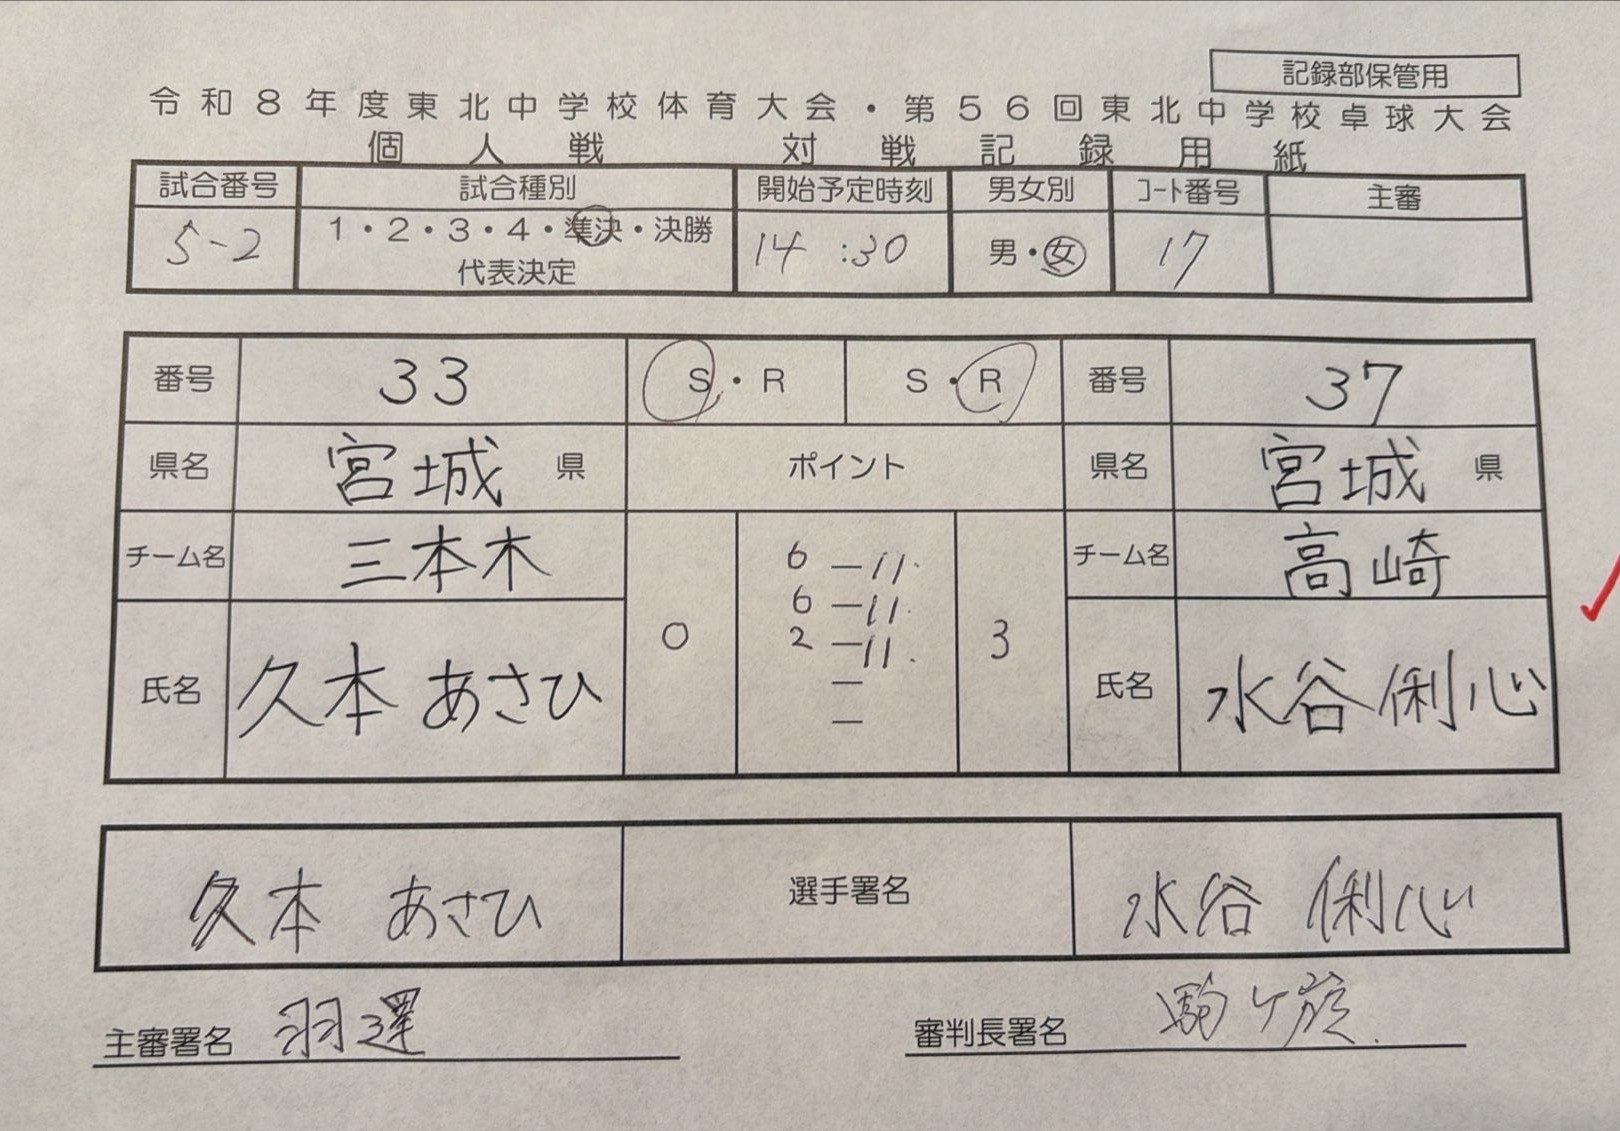 記録部保管用
令和8年度東北中学校体育大会・第56回東北中学校卓球大会
個人戦 対戦記録用紙
試合番号 試合種別 開始予定時刻 男女別 コート番号 主審
5-2 1・2・3・4・準決・決勝 14:30 男・女 17
代表決定
番号 33 S・R S・R 番号 37
県名 宮城 県 ポイント 県名 宮城 県
チーム名 三本木 チーム名 高崎
6 - 11
6 - 11
2 - 11
-
-
0 3
氏名 久本 あさひ 氏名 水谷 俐心
久本 あさひ 選手署名 水谷 俐心
主審署名 審判長署名